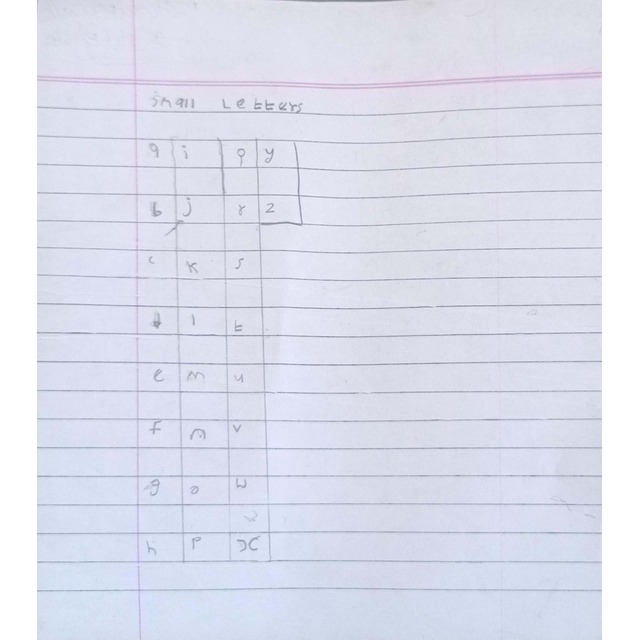 small Letters
a i q y
b j r z
c k s
d l t
e m u
f n v
g o w
h p x